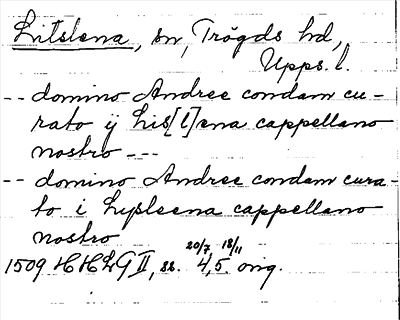 Litslena, sn, Trögds hd,
Upps. l.
-- domino Andree condam cu-
rato ij Lis[l]ena cappellano
nostro ---
-- domino Andree condam cura-
to i Lysleena cappellano
nostro
20/7 18/11
1509 HHLG II, ss. 4,5 orig.